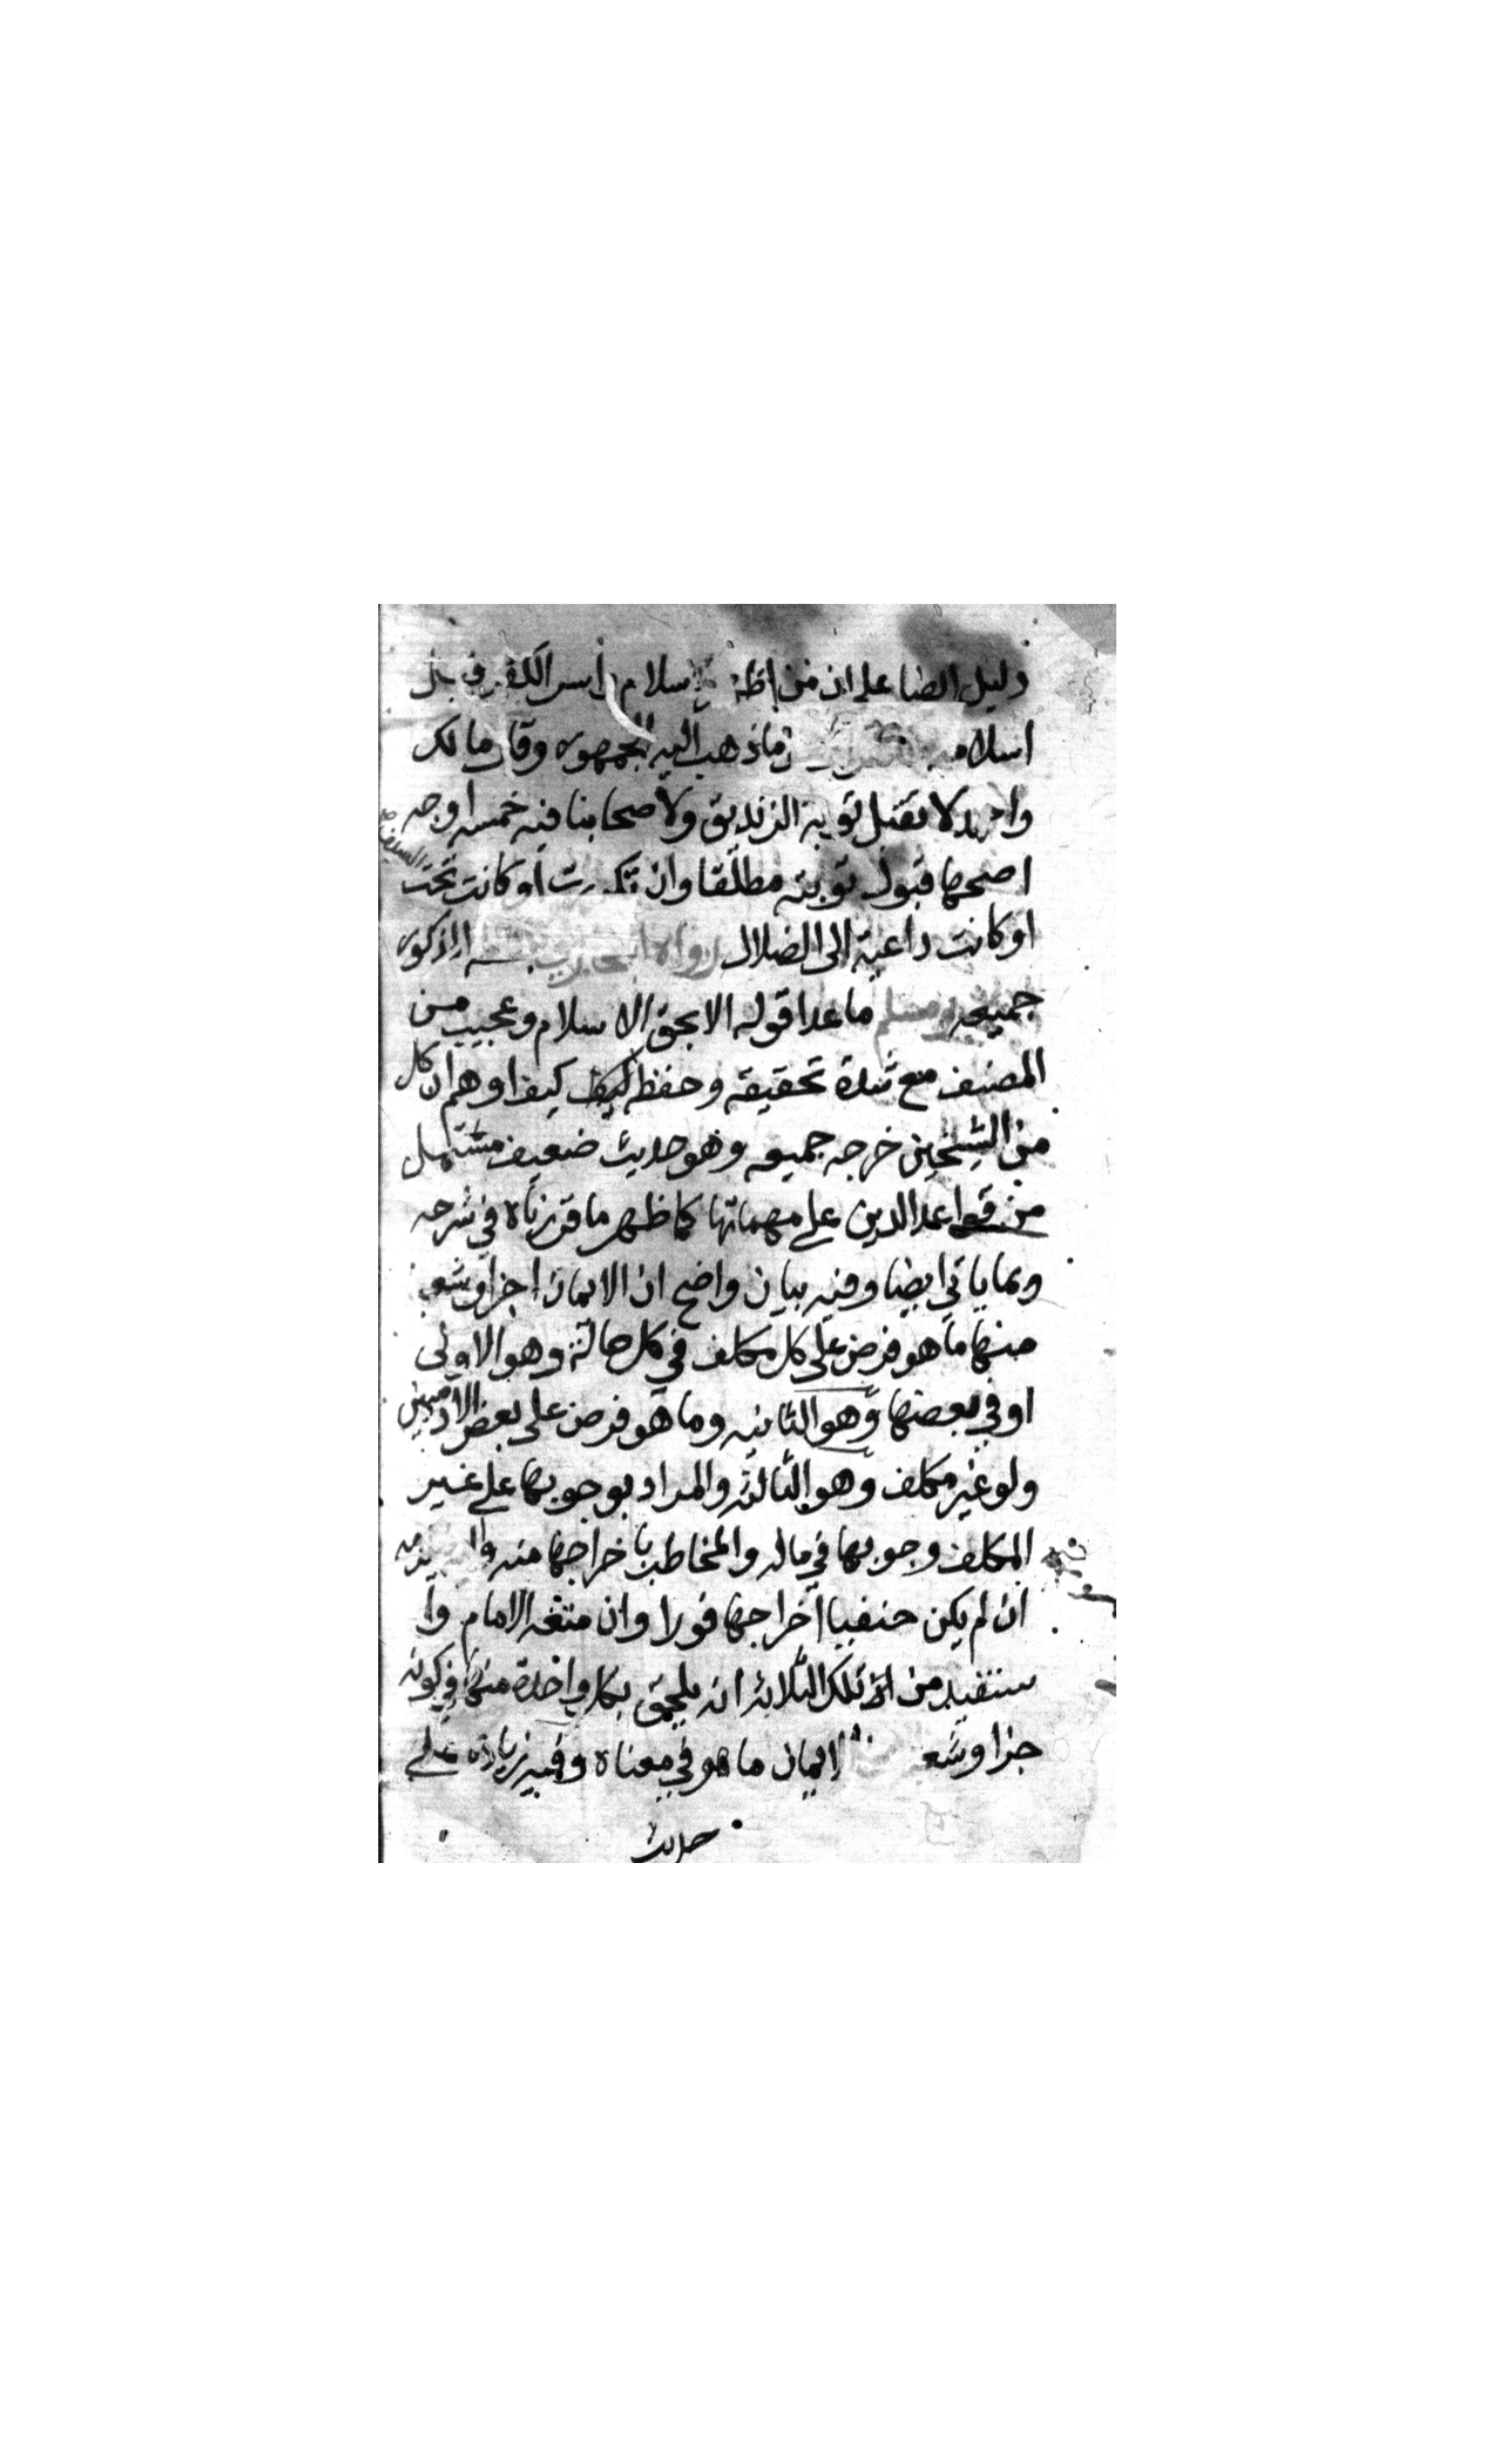 دليل ايضا على ان من اظهر الاسلام واسر الكفر قبل
اسلامه وما ذهب اليه الجمهور وقال مالك
واحمد لا تقبل توبة الزنديق ولاصحابنا فيه خمسة اوجه
اصحها قبول توبته مطلقا وان تكررت او كانت تحت السيف
او كانت داعية الى الضلال رواه البخاري المذكور
جميعه ومسلم ما عدا قوله الا بحق الاسلام وعجيب من
المصنف مع شدة تحقيقه وحفظه كيف اوهم ان كل
من الشيخين خرجه جميعه وهو حديث ضعيف مشتمل
من قواعد الدين على مهماتها كما ظهر ما قررناه في شرحه
وبما ياتي ايضا وفيه بيان واضح ان الايمان اجزا وشعب
منها ما هو فرض على كل مكلف في كل حالة وهو الاولى
او في بعضها وهو الثانيه وما هو فرض على بعض الادميين
ولو غير مكلف وهو الثالثة والمراد بوجوبها على غير
المكلف وجوبها في ماله والمخاطب باخراجها منه
ان لم يكن حنفيا اخراجها فورا وان منعه الامام وا
ستفيد من تلك الثلاثة انه يلحق بكل واحدة منها في كونه
جزا وشعبة الايمان ما هو في معناه وفيه زيادة على
حديث